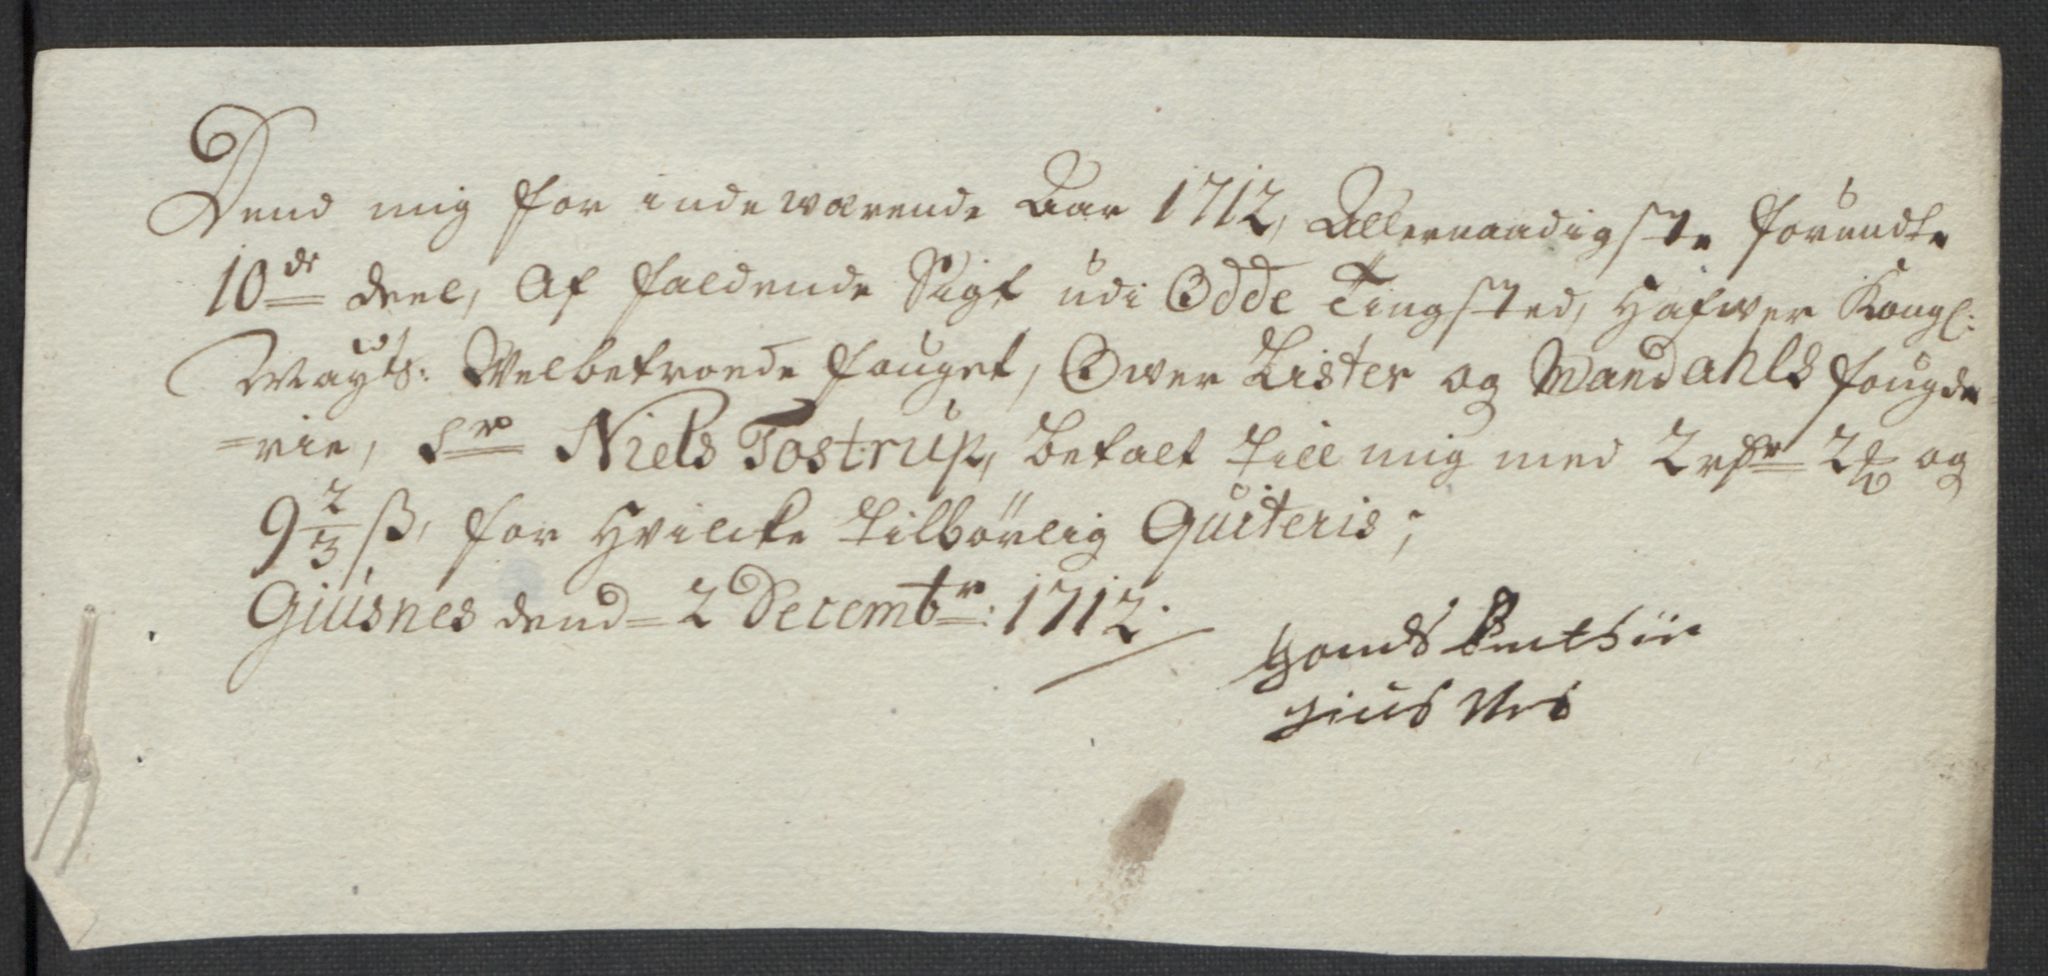 Dend mig for indewærende Aar 1712, Allernaadigste forundte
10de deel, Af faldende Sigt udi Odde Tingsted, Hafwer Kongl:
Mayts: Welbetroede fouget, Ower Lister og Mandahls fougde=
=rie, Sr Niels Tostrup, betalt till mig med 2 rdr 2 ℔ og
9 2/3 ß, for Hvilcke tilbörlig Quiteris;
Giusnes dend 2 Decembr: 1712.
Gius Nes